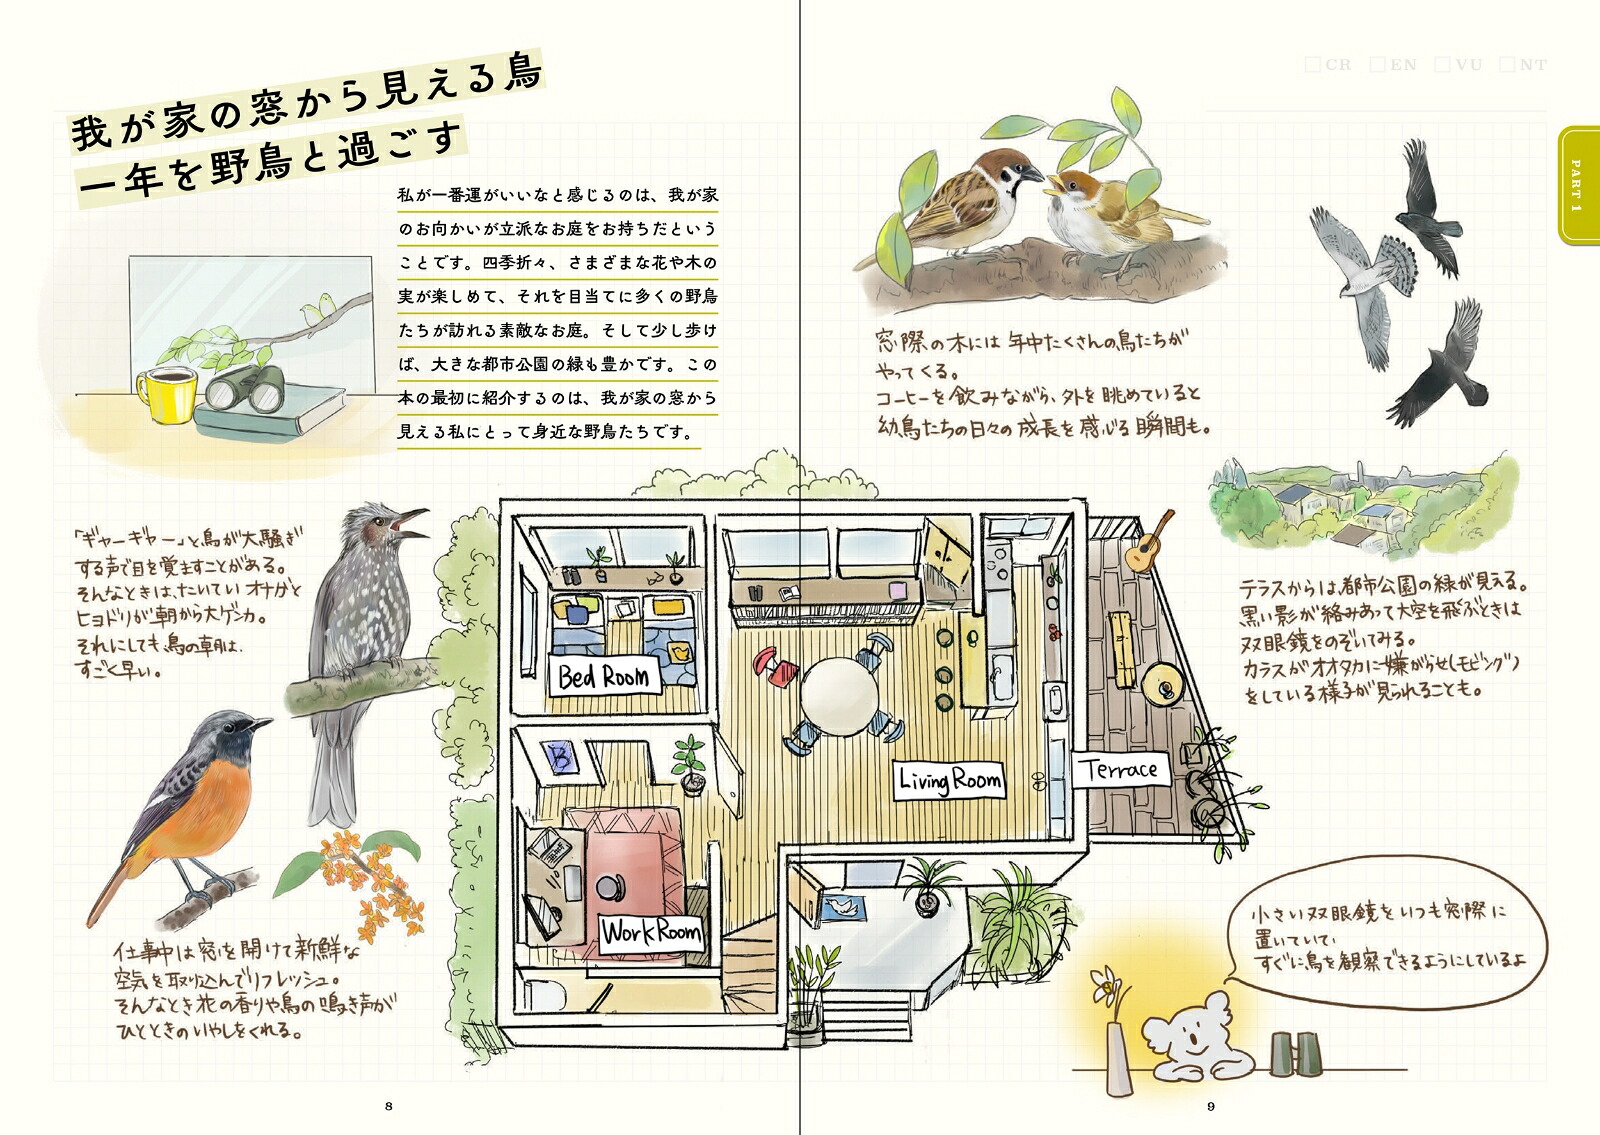 我が家の窓から見える鳥
一年を野鳥と過ごす
私が一番運がいいなと感じるのは、我が家
のお向かいが立派なお庭をお持ちだという
ことです。四季折々、さまざまな花や木の
実が楽しめて、それを目当てに多くの野鳥
たちが訪れる素敵なお庭。そして少し歩け
ば、大きな都市公園の緑も豊かです。この
本の最初に紹介するのは、我が家の窓から
見える私にとって身近な野鳥たちです。
「ギャーギャー」と鳥が大騒ぎ
する声で目を覚ますことがある。
そんなときは、たいてい オナガと
ヒヨドリが朝から大ゲンカ。
それにしても鳥の朝は、
すごく早い。
仕事中は窓を開けて新鮮な
空気を取り込んでリフレッシュ。
そんなとき花の香りや鳥の鳴き声が
ひとときのいやしをくれる。
Bed Room
Work Room
B
8
CR EN VU NT
PART 1
窓際の木には 年中たくさんの鳥たちが
やってくる。
コーヒーを飲みながら、外を眺めていると
幼鳥たちの日々の成長を感じる瞬間も。
テラスからは都市公園の緑が見える。
黒い影が絡みあって大空を飛ぶときは
双眼鏡をのぞいてみる。
カラスがオオタカに嫌がらせ(モビング)
をしている様子が見られることも。
Living Room
Terrace
小さい双眼鏡をいつも窓際に
置いていて、
すぐに鳥を観察できるようにしているよ
9